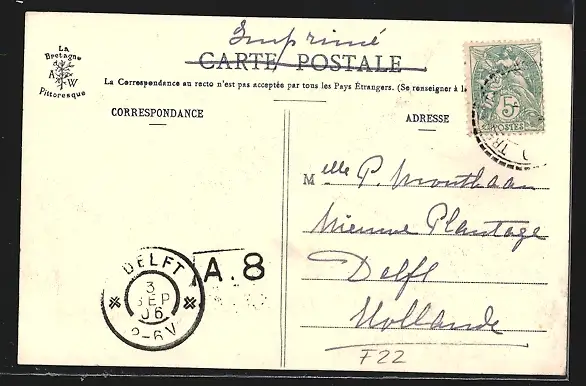 La
Bretagne
A W
Pittoresque
Imprimé
CARTE POSTALE
La Correspondance au recto n'est pas acceptée par tous les Pays Étrangers. (Se renseigner à la
CORRESPONDANCE
ADRESSE
5c
POSTES
Melle P. Monthaan
Nieuwe Plantage
Delft
Hollande
F22
DELFT
3
SEP
06
2-6V
A.8